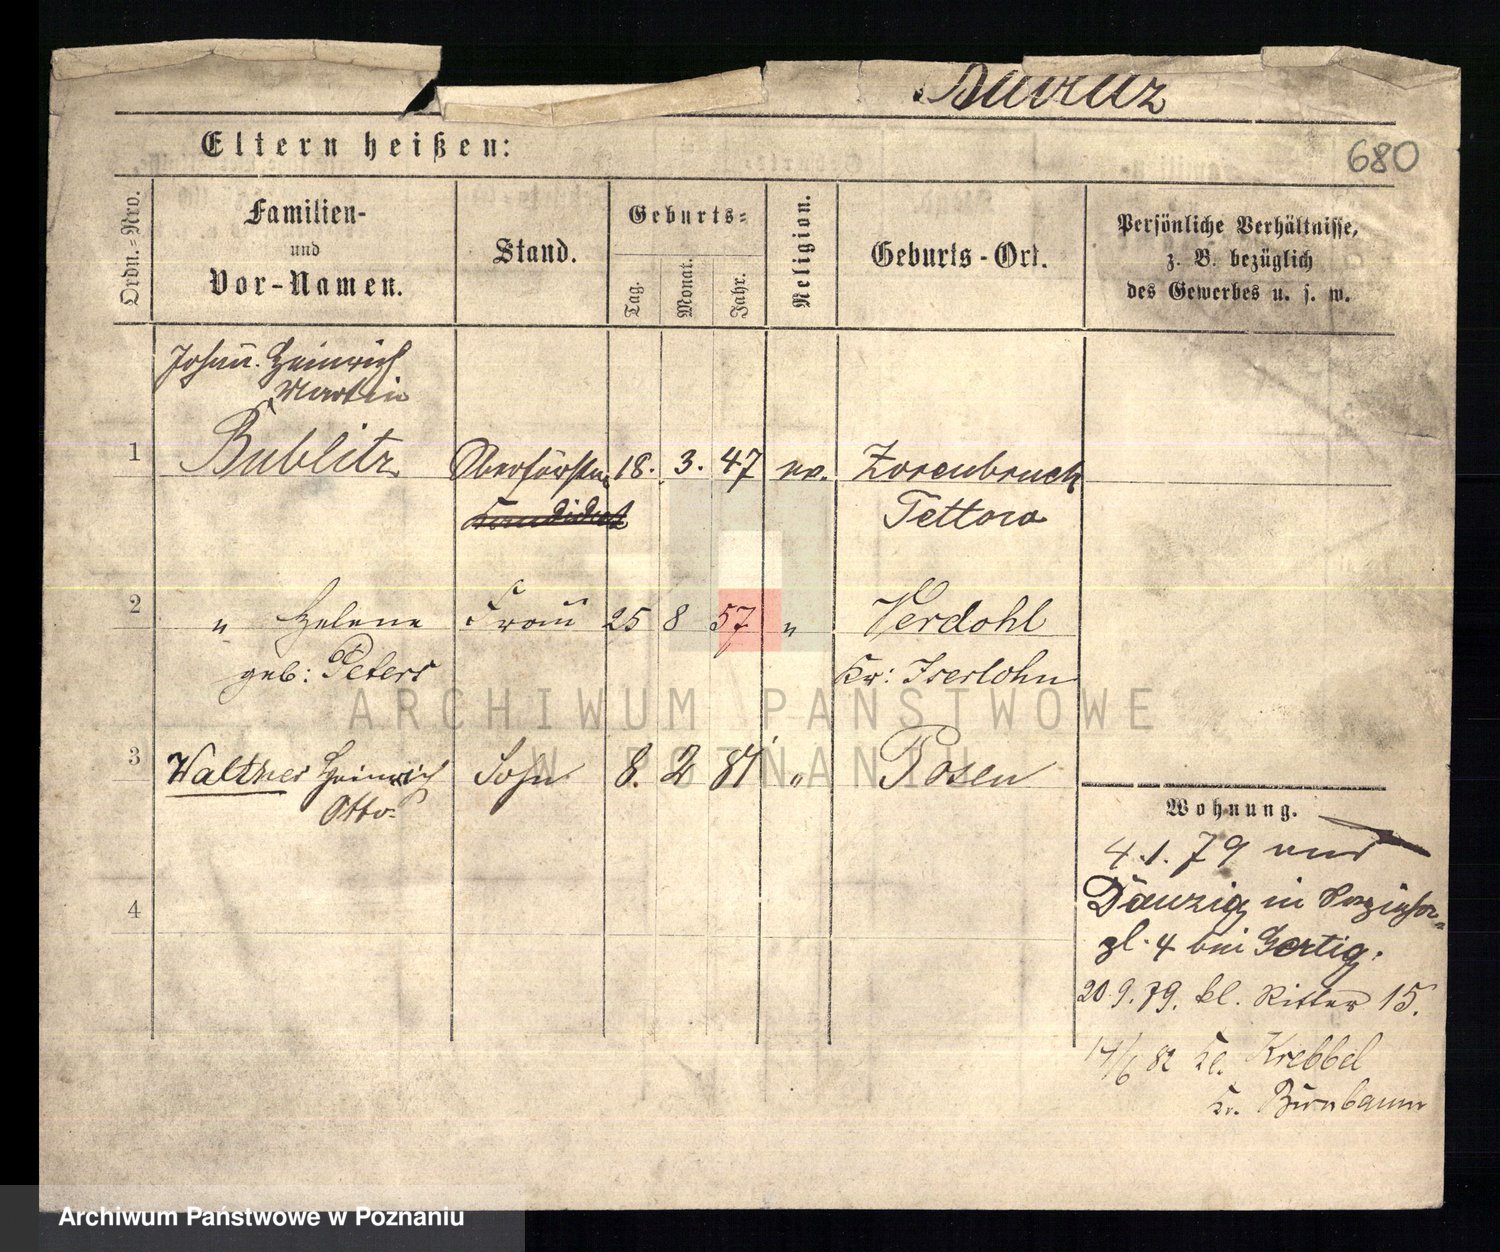 Bublitz
680
Eltern heißen:
Ordn.-Nro.
Familien-
und
Vor-Namen.
Stand.
Geburts-
Tag.
Monat.
Jahr.
Religion.
Geburts-Ort.
Persönliche Verhältnisse,
z. B. bezüglich
des Gewerbes u. s. w.
Johann Heinrich
Martin
1 Bublitz Oberförster 18. 3. 47 ev. Zorenbruch
Kandidat Tettow
2 " Helene Frau 25 8 57 " Verdohl
geb: Peters Kr: Iserlohn
3 Walther Heinrich Sohn 8. 2 81 " Posen
Otto
4
Wohnung.
4.1.79 aus
Danzig in
pl. 4 bei Gortig.
20.9.79. kl. Ritter 15.
14/6 82 Kl. Krebbel
Kr. Birnbaum
ARCHIWUM PAŃSTWOWE
W POZNANIU
Archiwum Państwowe w Poznaniu